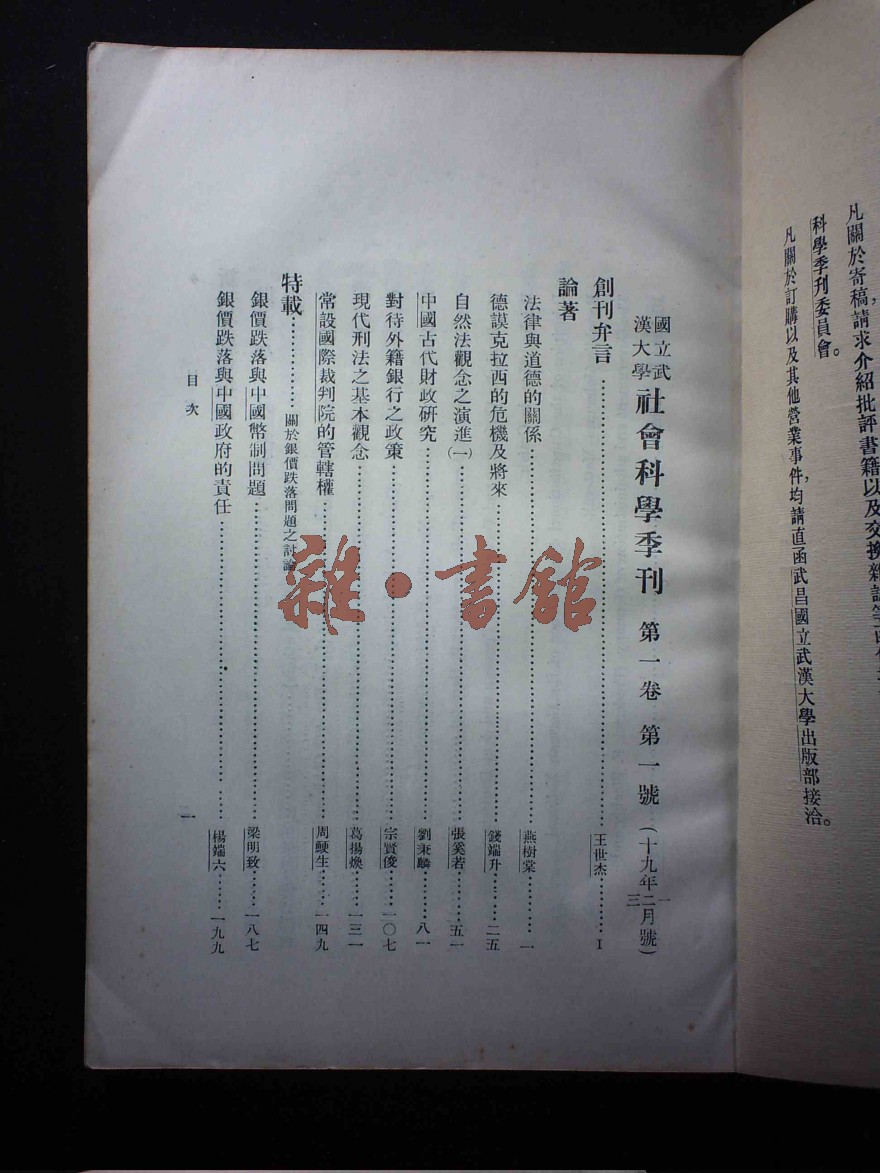 凡關於寄稿，請求介紹批評書籍以及交換雜誌等
科學季刊委員會。
凡關於訂購以及其他營業事件，均請直函武昌國立武漢大學出版部接洽。
國立武漢大學 社會科學季刊 第一卷 第一號 (十九年一二三月號)
創刊弁言……王世杰……I
論著
法律與道德的關係……燕樹棠……一
德謨克拉西的危機及將來……錢端升……二五
自然法觀念之演進(一)……張奚若……五一
中國古代財政研究……劉秉麟……八一
對待外籍銀行之政策……宗賢俊……一〇七
現代刑法之基本觀念……葛揚煥……一三一
常設國際裁判院的管轄權……周鯁生……一四九
特載……關於銀價跌落問題之討論
銀價跌落與中國幣制問題……梁明致……一八七
銀價跌落與中國政府的責任……楊端六……一九九
目次
一
雜·書館